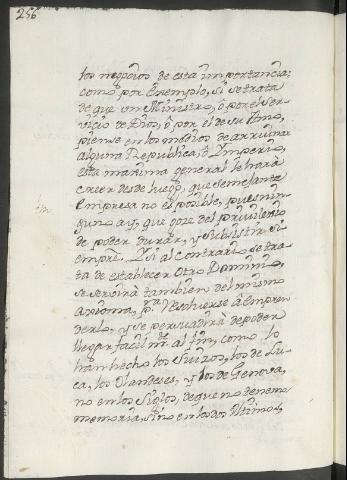 256
los negocios de esta importancia;
como por Exemplo, si se trata
de que un Ministro, ò por el Ser-
vicio de Dios, ò por el de su Amo,
piense en los medios de arruinar
alguna Republica, ò Imperio,
esta maxima general le hará
creer desde luego, que semejante
Empresa no es posible, pues nin-
guno ay, que goze del privilexio
de poder durar, y subsistir si-
empre. Y si al contrario se tra-
ta de establecer otro Dominio,
se servirà tambien del mismo
axioma, pª Resolverse à Empren-
derlo, y se persuadirà de poder
llegar facilmte. al fin, como lo
han hecho los Suizos, los de Lu-
ca, los Olandeses, y los de Genova,
no en los Siglos, de que no tenemos
memoria, sino en los dos Ultimos,